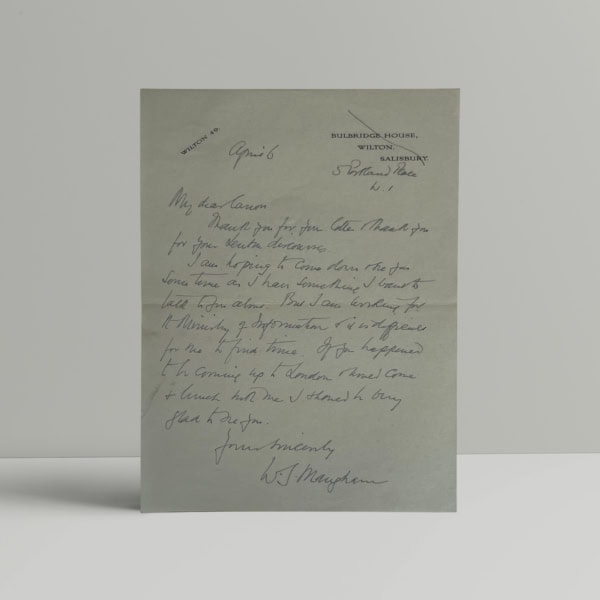 WILTON 49.
BULBRIDGE HOUSE,
WILTON,
SALISBURY.
April 6
5 Portland Place
W. 1
My dear Canon
Thank you for your letter & thank you
for your Lenten discourses.
I am hoping to come down & see you
some time as I have something I want to
talk to you about. But I am working for
the Ministry of Information & it is difficult
for me to find time. If you happened
to be coming up to London & would come
& lunch with me I should be very
glad to see you.
Yours sincerely
W. S. Maugham